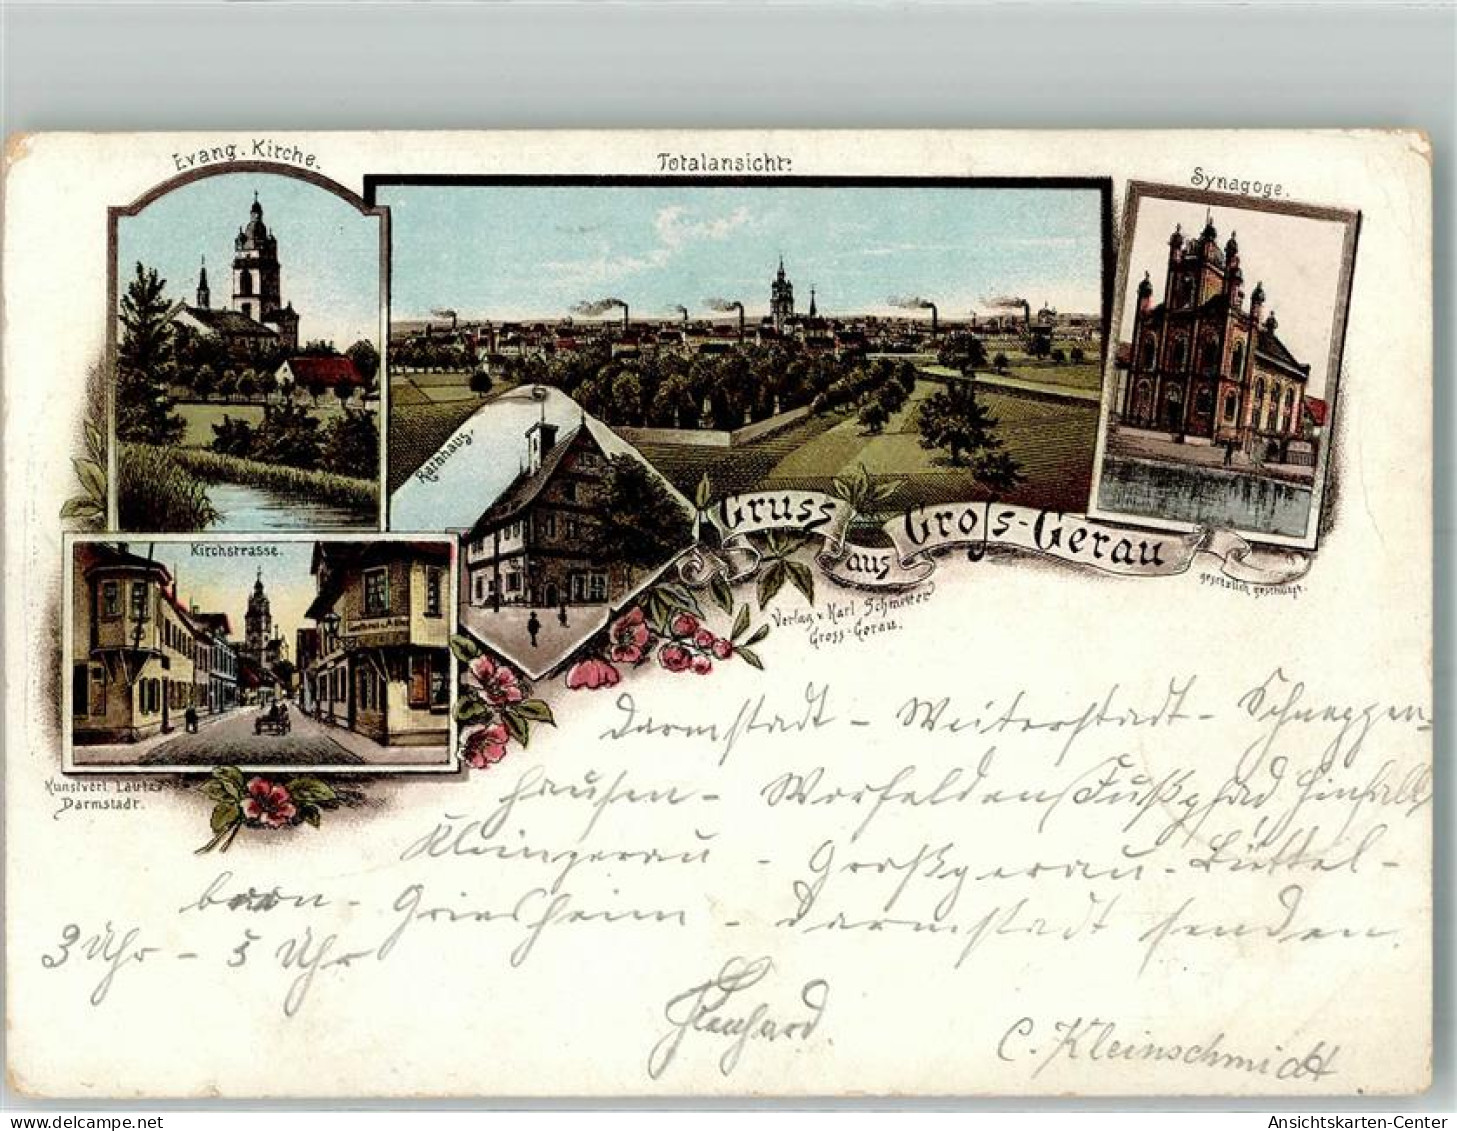 Evang. Kirche.
Totalansicht.
Synagoge.
Rathhaus.
Gruss
aus
Gross-Gerau
gesetzlich geschützt.
Kirchstrasse.
Verlag v. Karl Schmitter
Gross-Gerau.
Kunstverl. Lautz
Darmstadt.
Darmstadt - Weiterstadt - Schneppen-
hausen - Worfelden Fußpfad
Kleingerau - Großgerau - Büttel-
born - Griesheim - Darmstadt senden
3 Uhr - 5 Uhr
C. Kleinschmidt
Ansichtskarten-Center